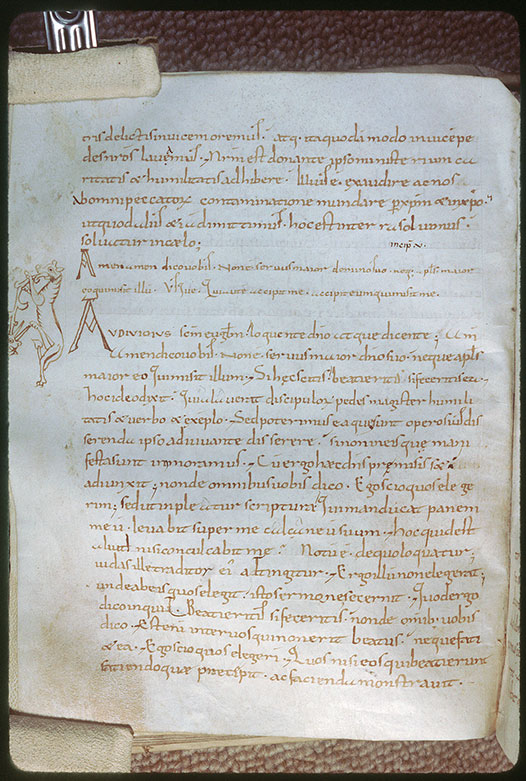 tris delictis invicem oremus. atq. ita quodā modo invicē pe
des nr̄os lavemus. Nr̄m est donante ipso ministerium ca
ritatis & humilitatis adhibere. Illius ē exaudire ac nos
ab omni peccatorū contaminatione mundare p xp̄m & in xp̄o.
ut quod aliis & iā dimittimus. hoc est in terra solvimus.
solvatur in cælo;
Amen amen dico vobis. Non ē servus maior dn̄o suo. neq. apls maior
eo qui misit illū. Usque. Qui me accipit
Audivimus sc̄m evgl̄m. loquente dn̄o atque dicente; Am
Amen dico vobis. Non ē servus maior dn̄o suo. neque apls
maior eo qui misit illum. Si hęc scitis. beati eritis si feceritis ea.
hoc ideo dixit. Quia laverat discipulorū pedes. magister humili
tatis & verbo & exēplo. Sed poterimus ea que sunt operosius dis
serenda ipso adiuvante disserere. si non in es que mani
festa sunt inmoramur. Cū ergo hæc dn̄s premisiss&
adiunxit; non de omnibus vobis dico. Ego scio quos elege
rim; sed ut inpleatur scriptura. Qui manducat panem
meū. levabit super me calcaneū suum. hoc quid est
aliud nisi conculcabit me. Notū ē. de quo loquatur;
iudas ille traditor ei' adtingitur. Ergo illū non elegerat;
unde ab eis quos elegit. isto sermone secernit. Quod ergo
dico inquid. Beati eritis si feceritis. non de omnib. vobis
dico. Est en̄ inter vos qui non erit beatus. neque faci
& ea. Ego scio quos elegeri. Quos nisi eos qui beati erunt
faciendo quæ precepit. ac facienda monstravit.